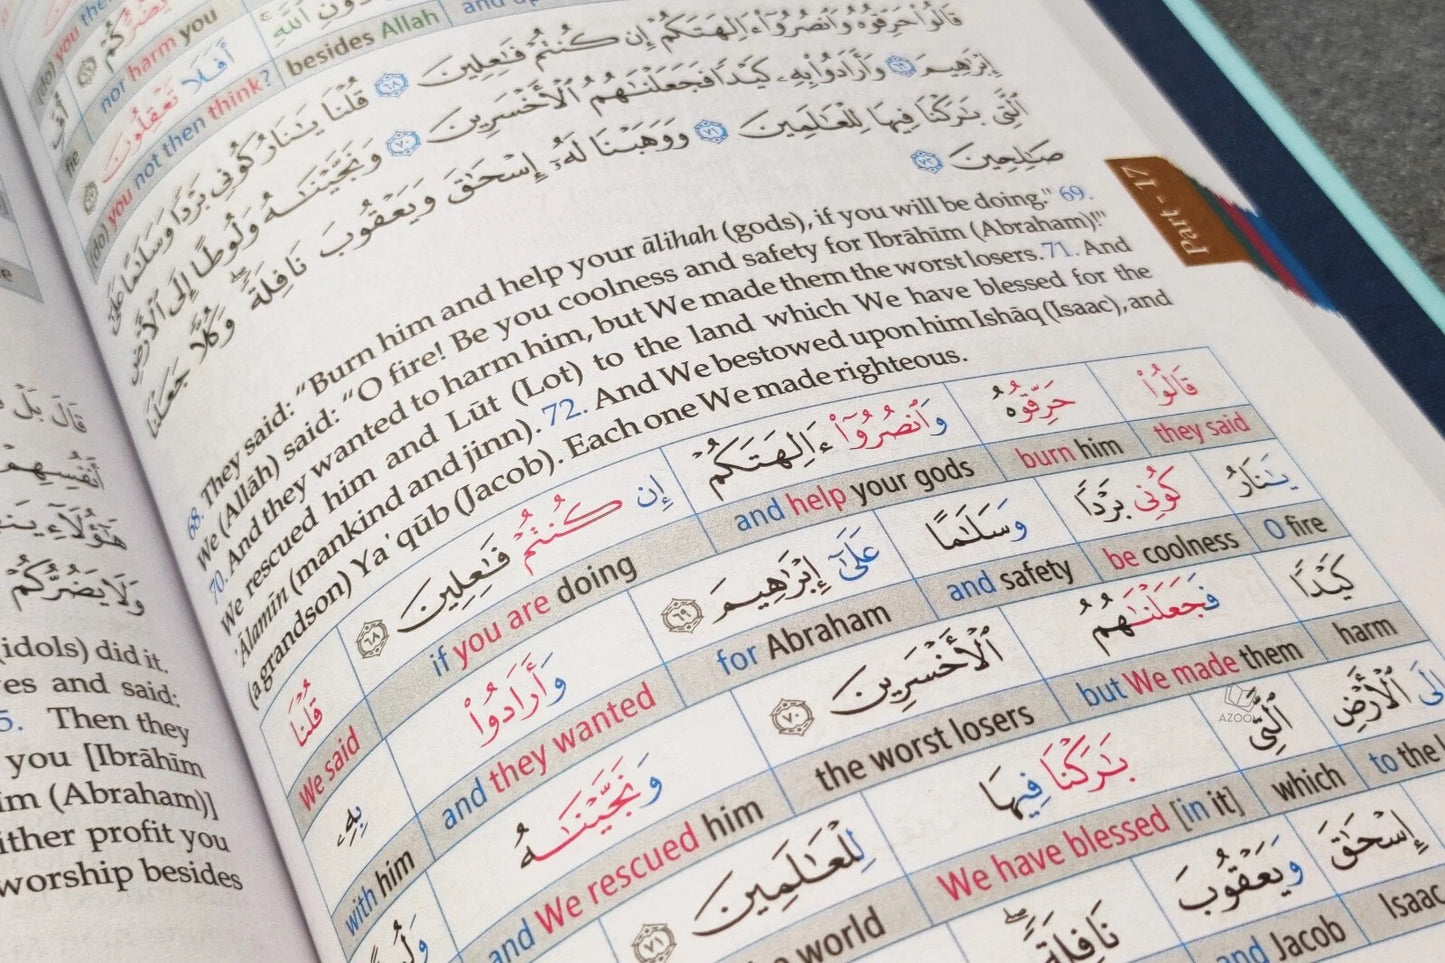 (do) you
ضُرُّكُمْ
دُونِ ٱللَّهِ
nor harm you
besides Allah
أُفٍّ
أَفَلَا تَعْقِلُونَ
fie
(do) you not then think?
قَالُوا۟ حَرِّقُوهُ وَٱنصُرُوٓا۟ ءَالِهَتَكُمْ إِن كُنتُمْ فَـٰعِلِينَ ٦٨ قُلْنَا يَـٰنَارُ كُونِى بَرْدًا وَسَلَـٰمًا عَلَىٰٓ
إِبْرَٰهِيمَ ٦٩ وَأَرَادُوا۟ بِهِۦ كَيْدًا فَجَعَلْنَـٰهُمُ ٱلْأَخْسَرِينَ ٧٠ وَنَجَّيْنَـٰهُ وَلُوطًا إِلَى ٱلْأَرْضِ
ٱلَّتِى بَـٰرَكْنَا فِيهَا لِلْعَـٰلَمِينَ ٧١ وَوَهَبْنَا لَهُۥٓ إِسْحَـٰقَ وَيَعْقُوبَ نَافِلَةً ۖ وَكُلًّا جَعَلْنَا
صَـٰلِحِينَ ٧٢
Part - 17
68. They said: "Burn him and help your ālihah (gods), if you will be doing." 69.
We (Allāh) said: "O fire! Be you coolness and safety for Ibrāhīm (Abraham)!"
70. And they wanted to harm him, but We made them the worst losers. 71. And
We rescued him and Lūt (Lot) to the land which We have blessed for the
'Ālamīn (mankind and jinn). 72. And We bestowed upon him Ishāq (Isaac), and
(a grandson) Ya'qūb (Jacob). Each one We made righteous.
قَالُوا۟ حَرِّقُوهُ وَٱنصُرُوٓا۟ ءَالِهَتَكُمْ إِن كُنتُمْ فَـٰعِلِينَ ٦٨
they said burn him and help your gods if you are doing
يَـٰنَارُ كُونِى بَرْدًا وَسَلَـٰمًا عَلَىٰٓ إِبْرَٰهِيمَ ٦٩ قُلْنَا
O fire be coolness and safety for Abraham We said
كَيْدًا فَجَعَلْنَـٰهُمُ ٱلْأَخْسَرِينَ ٧٠ وَأَرَادُوا۟ بِهِۦ
harm but We made them the worst losers and they wanted with him
إِلَى ٱلْأَرْضِ ٱلَّتِى بَـٰرَكْنَا فِيهَا وَنَجَّيْنَـٰهُ
to the which We have blessed [in it] and We rescued him
إِسْحَـٰقَ وَيَعْقُوبَ نَافِلَةً ۖ لِلْعَـٰلَمِينَ ٧١
Isaac and Jacob world
قَالَ بَلْ
أَنفُسِهِمْ
هَـٰٓؤُلَآءِ
وَلَا يَضُرُّكُمْ
(idols) did it.
and said:
Then they
you [Ibrāhīm
(Abraham)]
profit you
worship besides